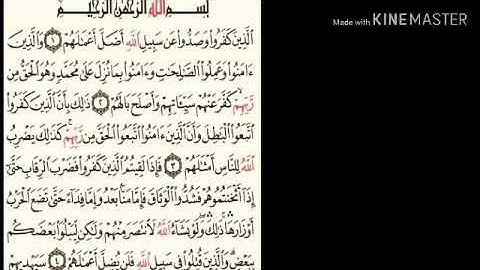 بِسْمِ اللَّهِ الرَّحْمَٰنِ الرَّحِيمِ
الَّذِينَ كَفَرُوا وَصَدُّوا عَن سَبِيلِ اللَّهِ أَضَلَّ أَعْمَالَهُمْ ۝١ وَالَّذِينَ
ءَامَنُوا وَعَمِلُوا الصَّالِحَاتِ وَءَامَنُوا بِمَا نُزِّلَ عَلَىٰ مُحَمَّدٍ وَهُوَ الْحَقُّ مِن
رَّبِّهِمْ كَفَّرَ عَنْهُمْ سَيِّئَاتِهِمْ وَأَصْلَحَ بَالَهُمْ ۝٢ ذَٰلِكَ بِأَنَّ الَّذِينَ كَفَرُوا
اتَّبَعُوا الْبَاطِلَ وَأَنَّ الَّذِينَ ءَامَنُوا اتَّبَعُوا الْحَقَّ مِن رَّبِّهِمْ كَذَٰلِكَ يَضْرِبُ
اللَّهُ لِلنَّاسِ أَمْثَالَهُمْ ۝٣ فَإِذَا لَقِيتُمُ الَّذِينَ كَفَرُوا فَضَرْبَ الرِّقَابِ حَتَّىٰ
إِذَا أَثْخَنتُمُوهُمْ فَشُدُّوا الْوَثَاقَ فَإِمَّا مَنًّا بَعْدُ وَإِمَّا فِدَاءً حَتَّىٰ تَضَعَ الْحَرْبُ
أَوْزَارَهَا ذَٰلِكَ وَلَوْ يَشَاءُ اللَّهُ لَانتَصَرَ مِنْهُمْ وَلَٰكِن لِّيَبْلُوَا بَعْضَكُم
بِبَعْضٍ وَالَّذِينَ قُتِلُوا فِي سَبِيلِ اللَّهِ فَلَن يُضِلَّ أَعْمَالَهُمْ ۝٤ سَيَهْدِيهِمْ
Made with KINEMASTER